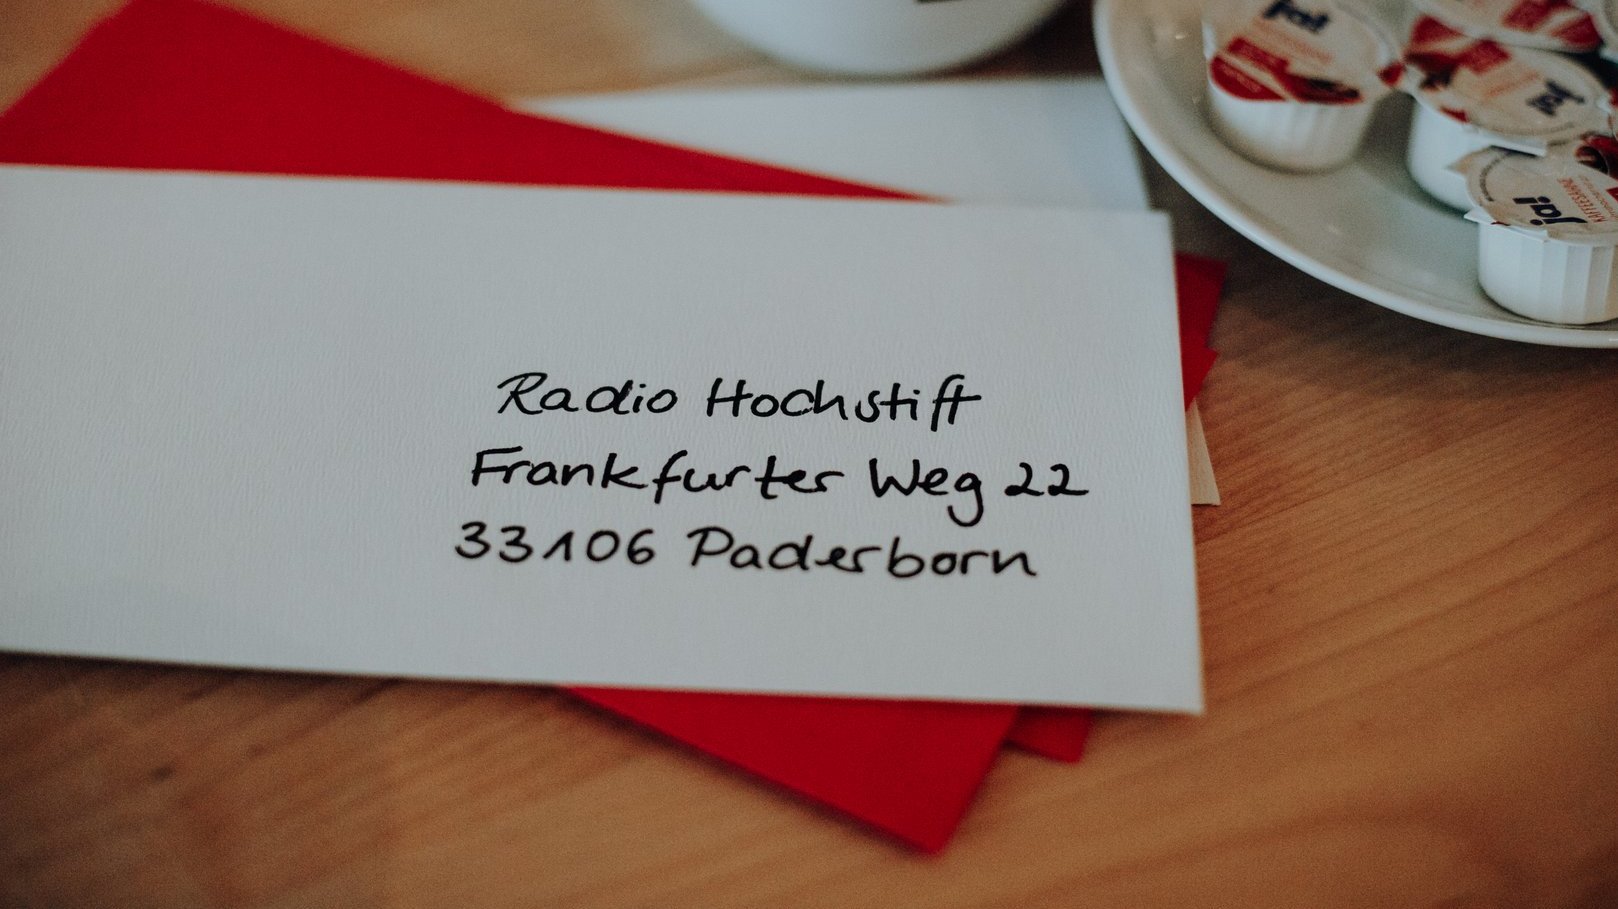 Radio Hochstift
Frankfurter Weg 22
33106 Paderborn
ja!
ja!
ja!
KAFFEESAHNE